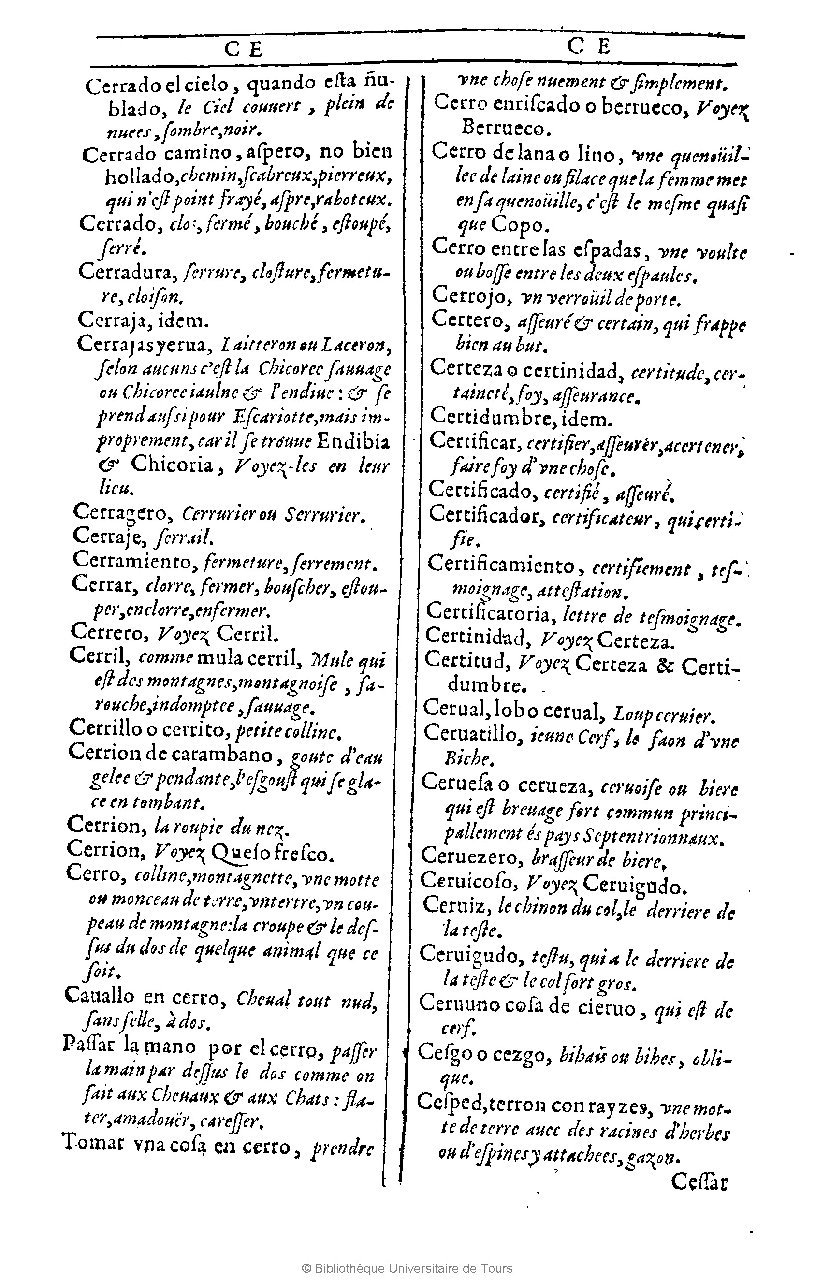 C E
Cerrado el cielo, quando eſta ñu-
blado, le Ciel couuert, plein de
nuees, ſombre, noir.
Cerrado camino, aſpero, no bien
hollado, chemin, ſcabreux, pierreux,
qui n'eſt point frayé, aſpre, raboteux.
Cerrado, clos, fermé, bouché, eſtoupé,
ſerré.
Cerradura, ſerrure, cloſture, fermetu-
re, cloiſon.
Cerraja, idem.
Cerrajas yerua, Laitteron ou Laceron,
ſelon aucuns c'eſt la Chicoree ſauuage
ou Chicoree iaulne & l'endiue: & ſe
prend auſsi pour Eſcariotte, mais im-
proprement, car il ſe trouue Endibia
& Chicoria, Voyez-les en leur
lieu.
Cerragero, Cerrurier ou Serrurier.
Cerraje, ſerrail.
Cerramiento, fermeture, ſerrement.
Cerrar, clorre, fermer, bouſcher, eſtou-
per, enclorre, enfermer.
Cerrero, Voyez Cerril.
Cerril, comme mula cerril, Mule qui
eſt des montagnes, montagnoiſe, fa-
rouche, indomptee, ſauuage.
Cerrillo o cerrito, petite colline.
Cerrion de carambano, goute d'eau
gelee & pendante, l'eſgouſt qui ſe gla-
ce en tombant.
Cerrion, la roupie du nez.
Cerrion, Voyez Queſo freſco.
Cerro, colline, montagnette, vne motte
ou monceau de terre, vn tertre, vn cou-
peau de montagne: la croupe & le deſ-
ſus du dos de quelque animal que ce
ſoit.
Cauallo en cerro, Cheual tout nud,
ſans ſelle, à dos.
Paſſar la mano por el cerro, paſſer
la main par deſſus le dos comme on
fait aux Cheuaux & aux Chats: fla-
ter, amadouër, careſſer.
Tomar vna coſa en cerro, prendre
C E
vne choſe nuement & ſimplement.
Cerro enriſcado o berrueco, Voyez
Berrueco.
Cerro de lana o lino, vne quenoüil-
lee de laine ou filace que la femme met
en ſa quenoüille, c'eſt le meſme quaſi
que Copo.
Cerro entre las eſpadas, vne voulte
ou boſſe entre les deux eſpaules.
Cerrojo, vn verroüil de porte.
Certero, aſſeuré & certain, qui frappe
bien au but.
Certeza o certinidad, certitude, cer-
taineté, foy, aſſeurance.
Certidumbre, idem.
Certificar, certifier, aſſeurer, acertener,
faire foy d'vne choſe.
Certificado, certifié, aſſeuré.
Certificador, certificateur, qui certi-
fie.
Certificamiento, certifiement, teſ-
moignage, atteſtation.
Certificatoria, lettre de teſmoignage.
Certinidad, Voyez Certeza.
Certitud, Voyez Certeza & Certi-
dumbre.
Cerual, lobo cerual, Loup ceruier.
Ceruatillo, ieune Cerf, le faon d'vne
Biche.
Cerueſa o cerueza, ceruoiſe ou biere
qui eſt breuage fort commun princi-
pallement és pays Septentrionnaux.
Ceruezero, braſſeur de biere.
Ceruicoſo, Voyez Ceruigudo.
Ceruiz, le chinon du col, le derriere de
la teſte.
Ceruigudo, teſtu, qui a le derriere de
la teſte & le col fort gros.
Ceruuno coſa de cieruo, qui eſt de
cerf.
Ceſgo o cezgo, bihais ou bihes, obli-
que.
Ceſped, terron con rayzes, vne mot-
te de terre auec des racines d'herbes
ou d'eſpines y attachees, gazon.
Ceſſar
© Bibliothèque Universitaire de Tours